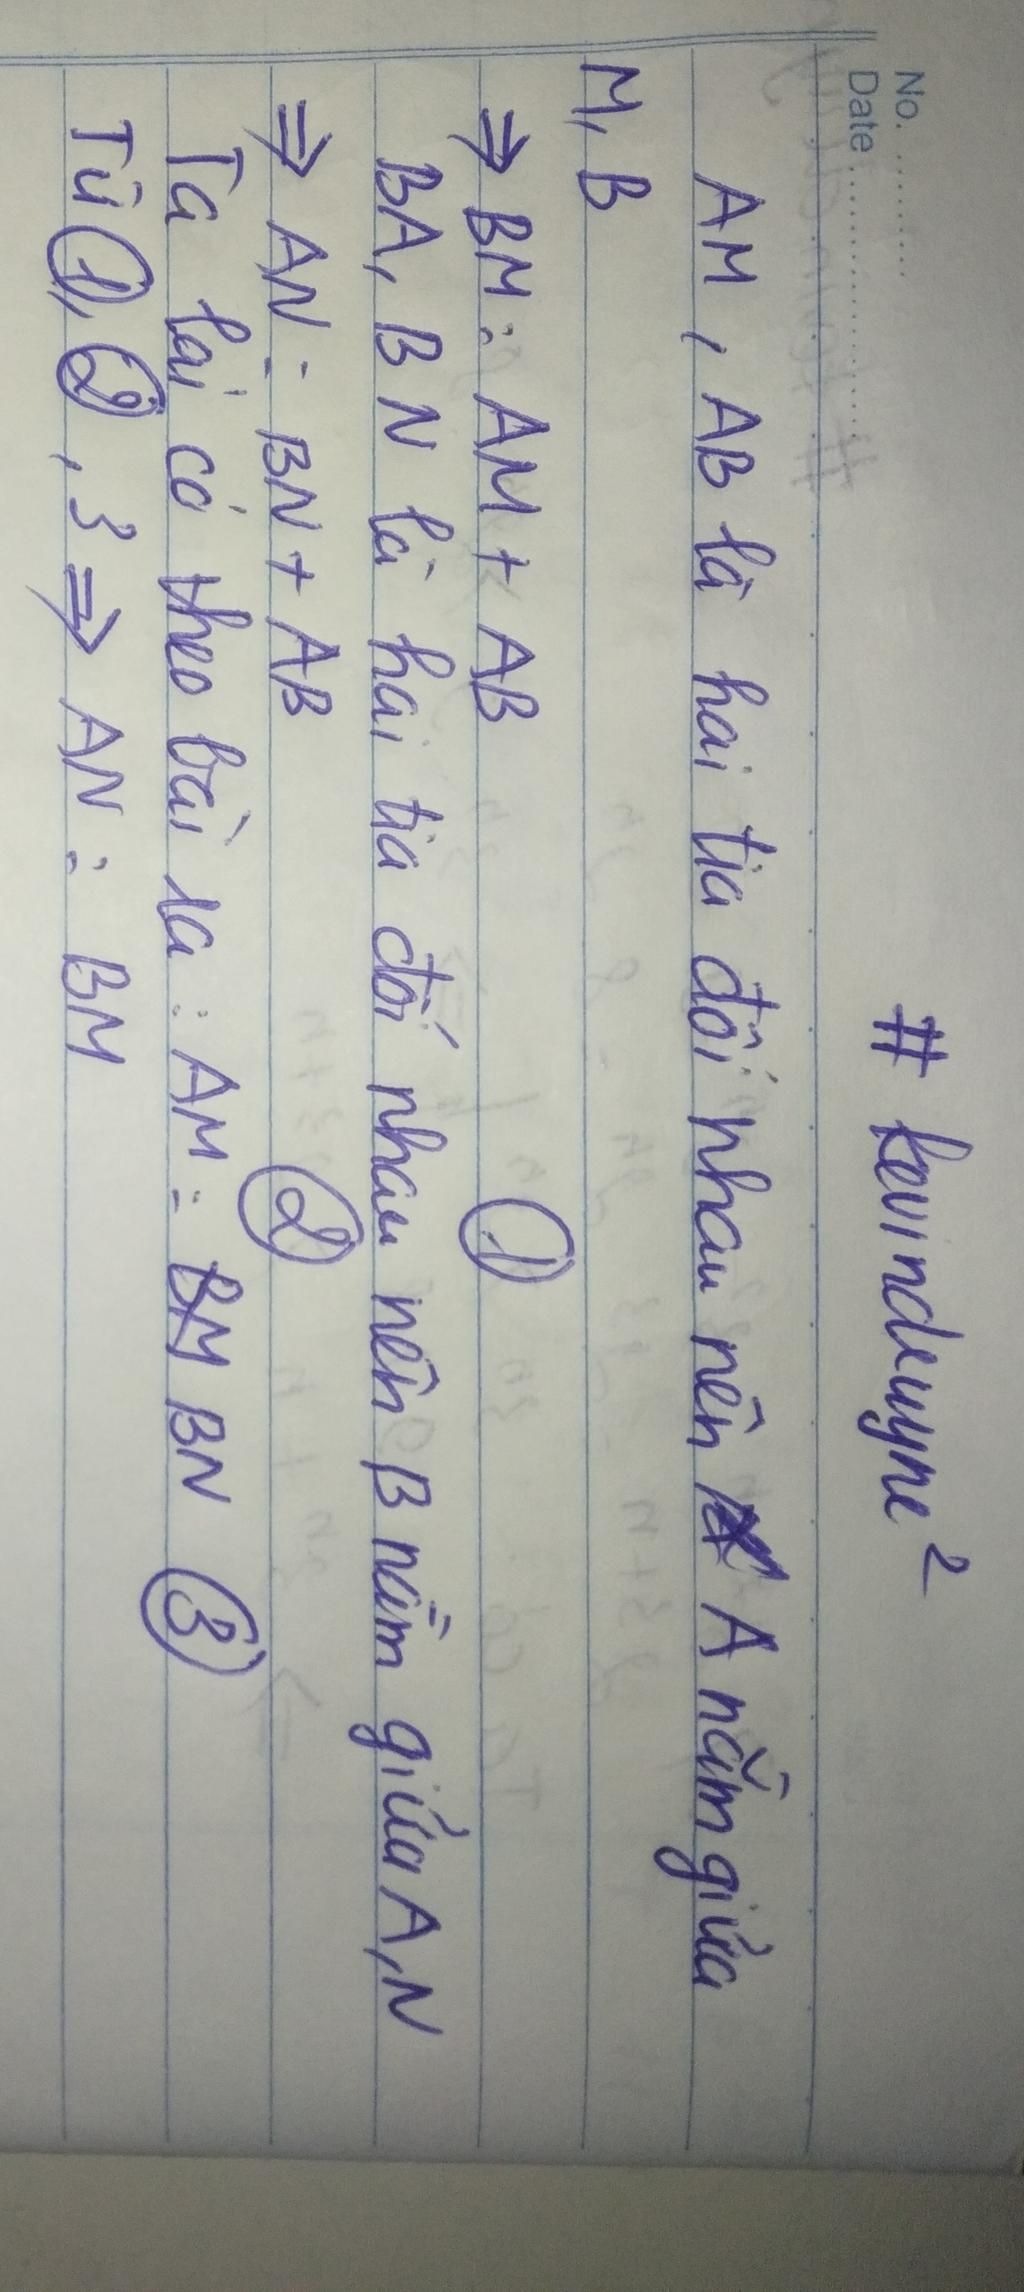 No. ............
Date ........................
# kevindeuyne²
AM, AB là hai tia đối nhau nên A nằm giữa
M, B
⇒ BM = AM + AB ①
BA, BN là hai tia đối nhau nên B nằm giữa A, N
⇒ AN = BN + AB ②
Ta lại có theo bài ra : AM = BM BN ③
Từ ①, ②, 3 ⇒ AN = BM